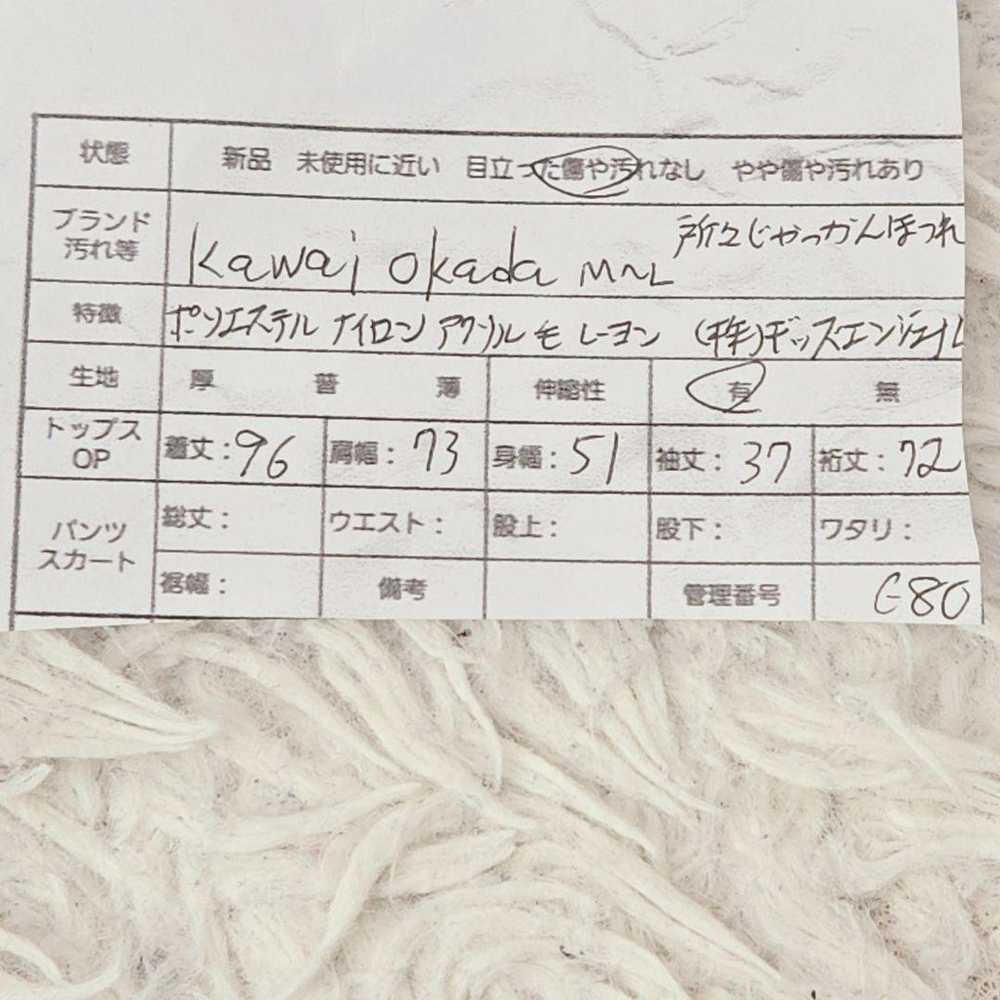 状態 新品 未使用に近い 目立った傷や汚れなし やや傷や汚れあり
ブランド 汚れ等 kawai okada M〜L 所々じゃっかんほつれ
特徴 ポリエステル ナイロン アクリル 毛 レーヨン (株)ギッスエンジェル
生地 厚 普 薄 伸縮性 有 無
トップス OP 着丈:96 肩幅:73 身幅:51 袖丈:37 裄丈:72
パンツ スカート 総丈: ウエスト: 股上: 股下: ワタリ:
裾幅: 備考 管理番号 C80